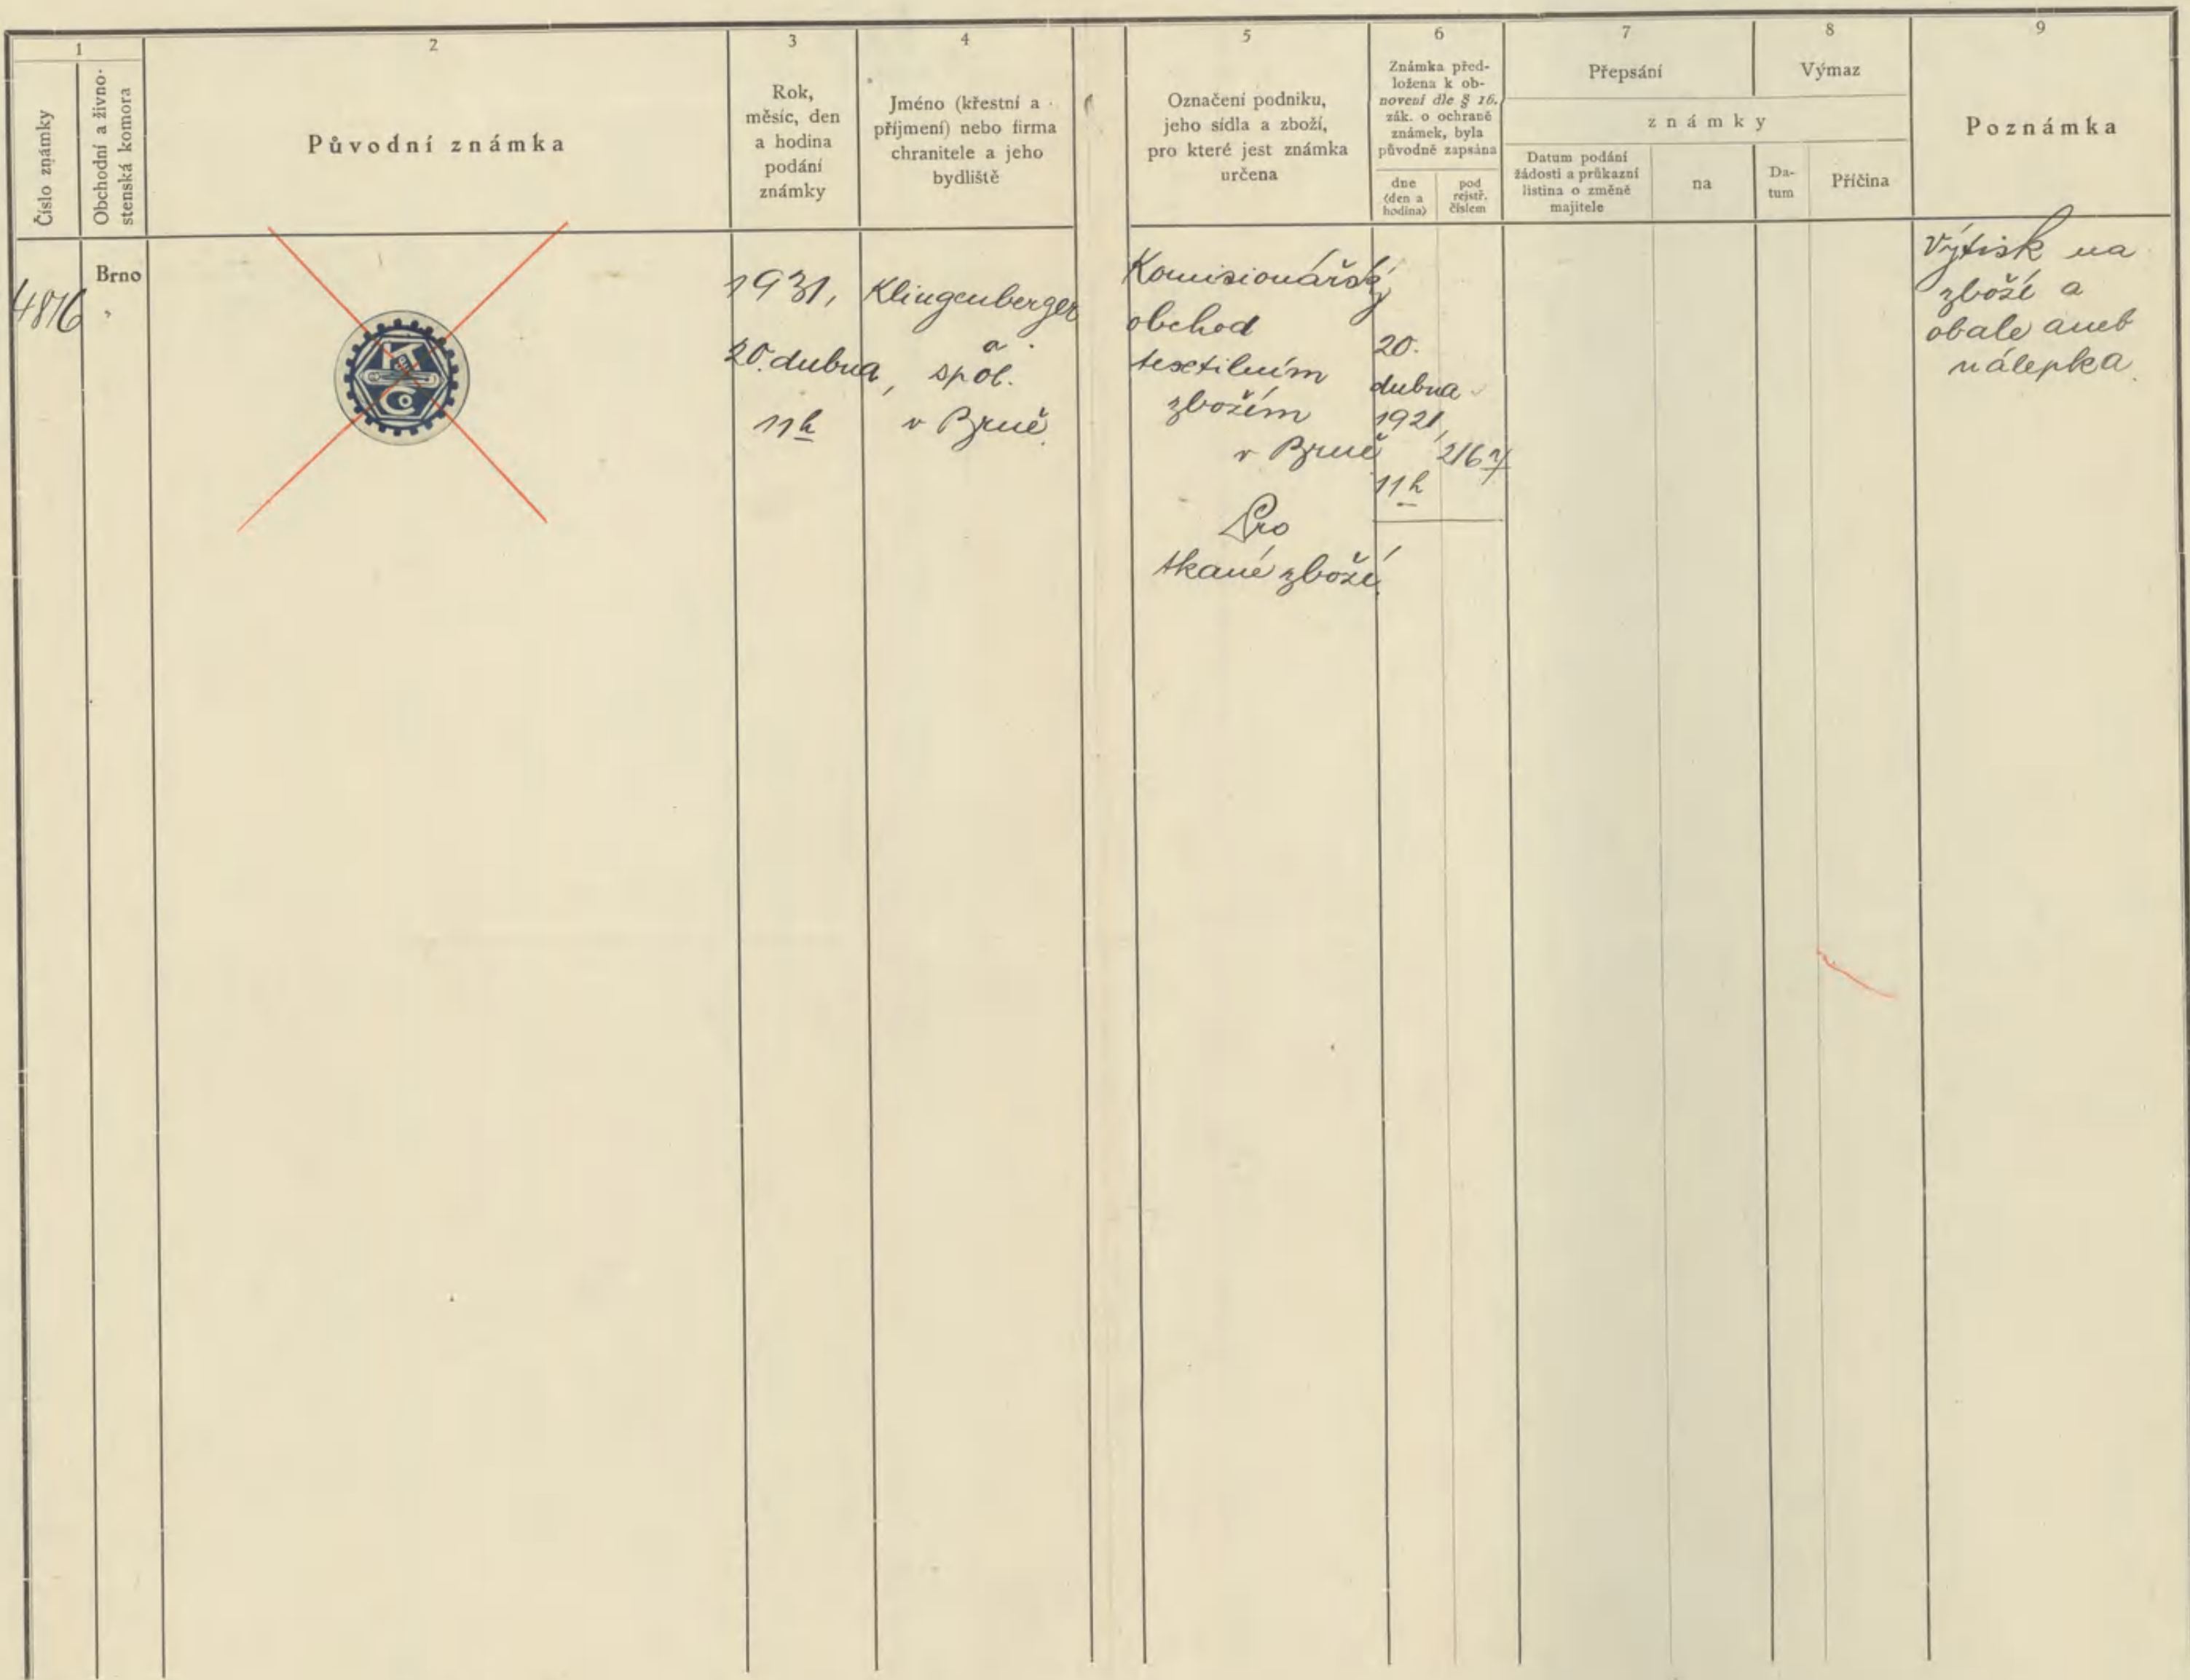 1
Číslo známky
Obchodní a živno-
stenská komora
2
Původní známka
3
Rok,
měsíc, den
a hodina
podání
známky
4
Jméno (křestní a
příjmení) nebo firma
chranitele a jeho
bydliště
5
Označení podniku,
jeho sídla a zboží,
pro které jest známka
určena
6
Známka před-
ložena k ob-
novení dle § 16.
zák. o ochraně
známek, byla
původně zapsána
dne
(den a
hodina)
pod
rejstř.
číslem
7
Přepsání
8
Výmaz
známky
Datum podání
žádosti a průkazní
listina o změně
majitele
na
Da-
tum
Příčina
9
Poznámka
4816
Brno
K
Co
1931,
20. dubna,
11h
Klingenberger
a
spol.
v Brně.
Komisionářský
obchod
textilním
zbožím
v Brně
Pro
tkané zboží.
20.
dubna
1921,
11h
2167
Výtisk na
zboží a
obale aneb
nálepka.